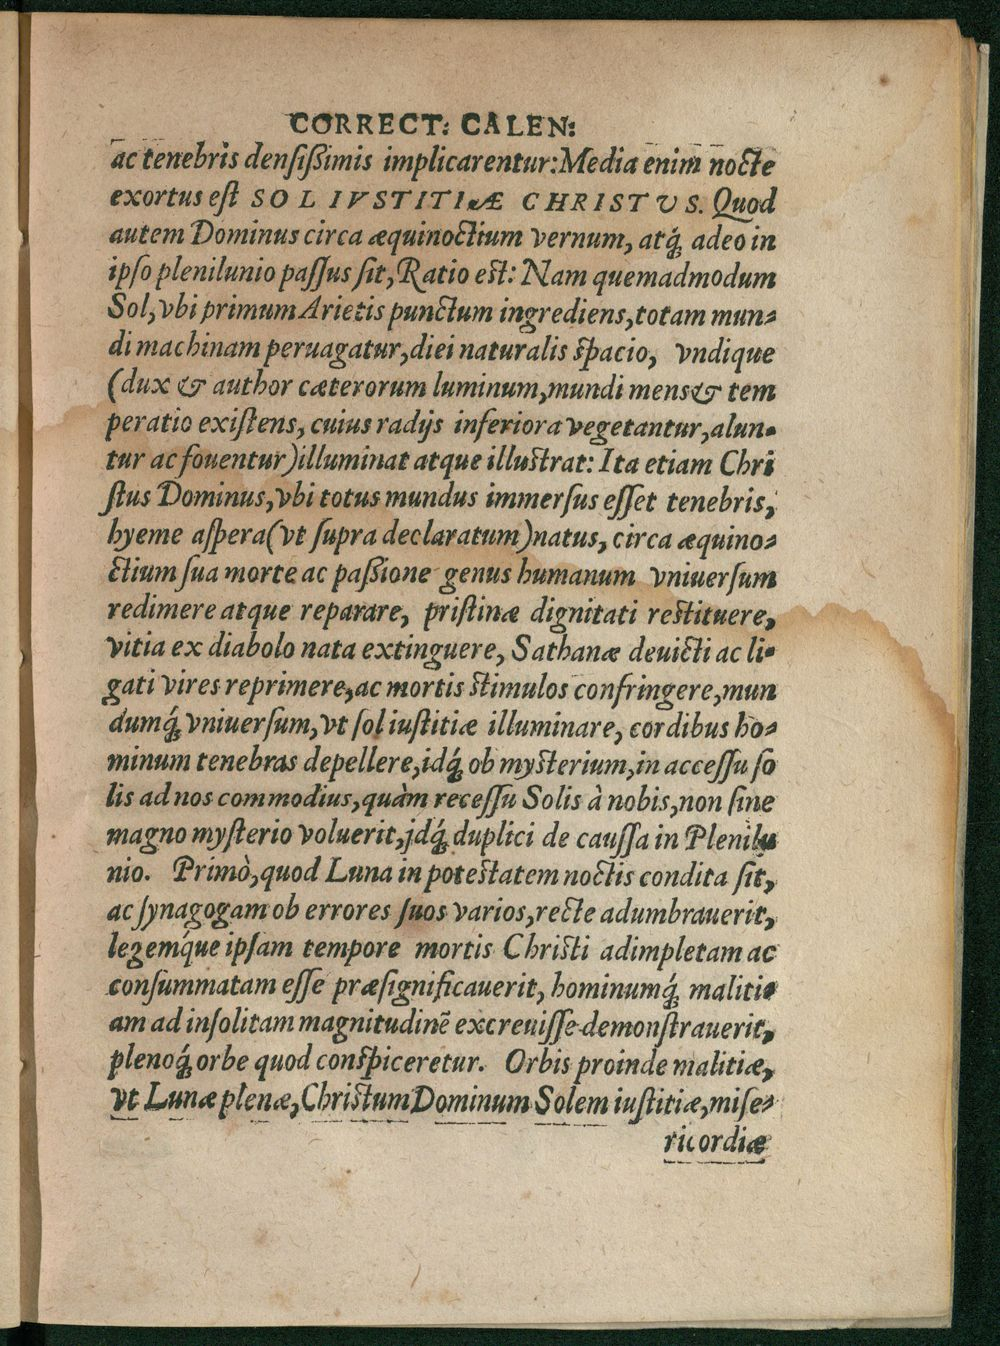 CORRECT: CALEN:
ac tenebris densißimis implicarentur: Media enim nocte
exortus est SOL IVSTITIÆ CHRISTVS. Quod
autem Dominus circa æquinoctium vernum, atq́; adeo in
ipso plenilunio passus sit, Ratio est: Nam quemadmodum
Sol, vbi primum Arietis punctum ingrediens, totam mun-
di machinam peruagatur, diei naturalis spacio, vndique
(dux & author cæterorum luminum, mundi mens & tem
peratio existens, cuius radijs inferiora vegetantur, alun-
tur ac fouentur) illuminat atque illustrat: Ita etiam Chri
stus Dominus, vbi totus mundus immersus esset tenebris,
hyeme aspera (vt supra declaratum) natus, circa æquino-
ctium sua morte ac paßione genus humanum vniuersum
redimere atque reparare, pristinæ dignitati restituere,
vitia ex diabolo nata extinguere, Sathanæ deuicti ac li-
gati vires reprimere, ac mortis stimulos confringere, mun
dumq́; vniuersum, vt sol iustitiæ illuminare, cordibus ho-
minum tenebras depellere, idq́; ob mysterium, in accessu so
lis ad nos commodius, quàm recessu Solis à nobis, non sine
magno mysterio voluerit, jdq́; duplici de caussa in Plenilu
nio. Primò, quod Luna in potestatem noctis condita sit,
ac synagogam ob errores suos varios, recte adumbrauerit,
legemq́ue ipsam tempore mortis Christi adimpletam ac
consummatam esse præsignificauerit, hominumq́; maliti-
am ad insolitam magnitudinē excreuisse demonstrauerit,
plenoq́; orbe quod conspiceretur. Orbis proinde malitiæ,
vt Lunæ plenæ, Christum Dominum Solem iustitiæ, mise-
ricordiæ